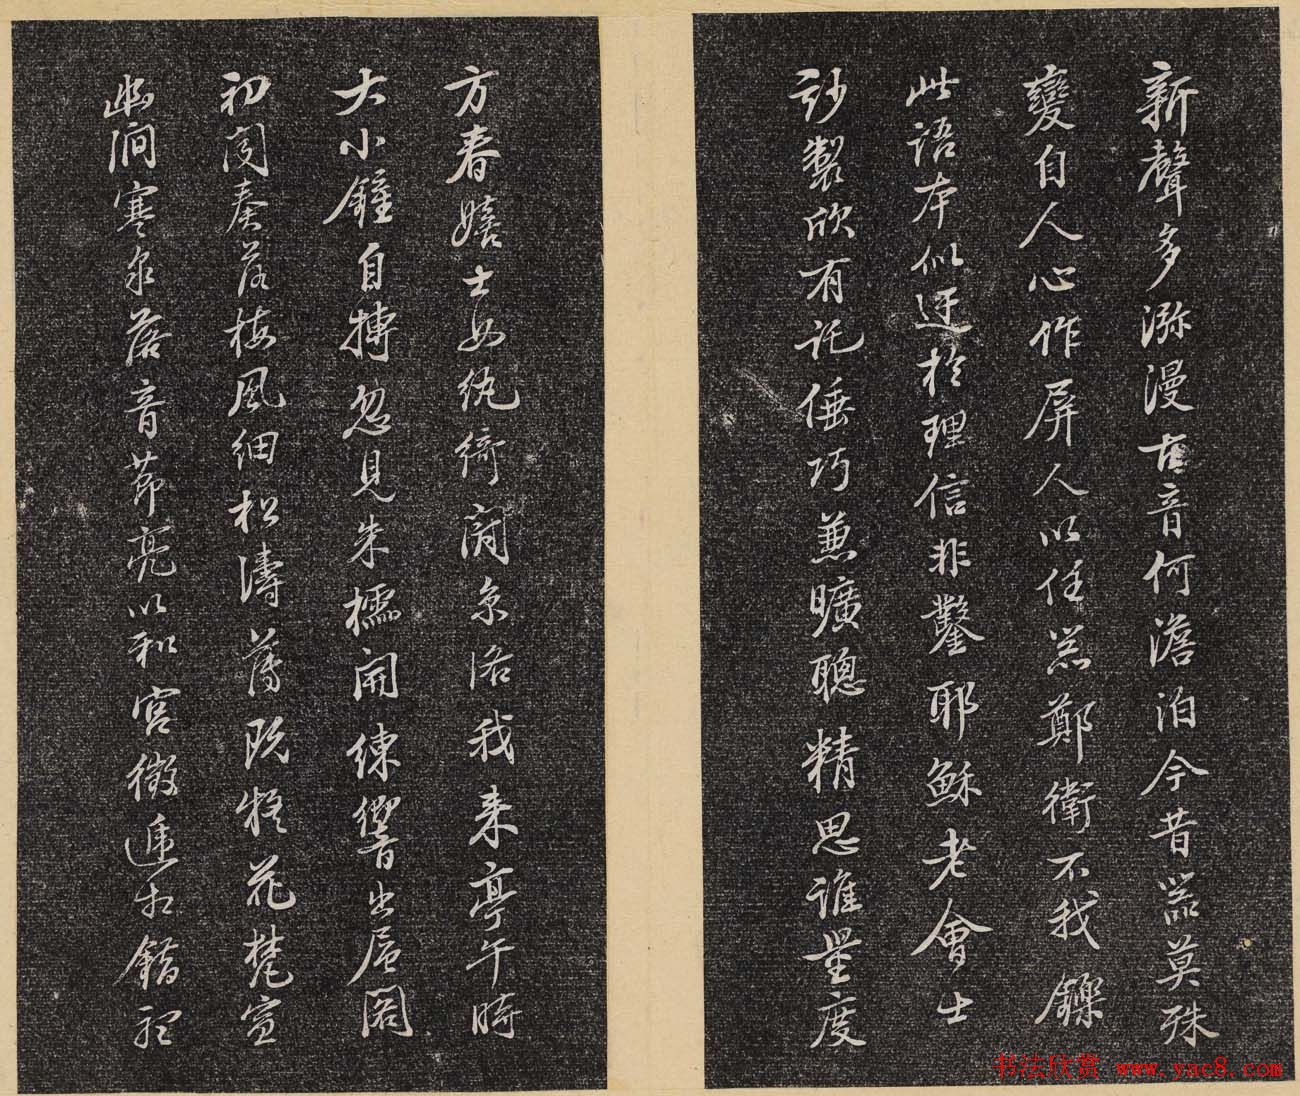 新聲多漰漫古音何澹泊今昔器莫殊
變自人心作屏人以任器鄭衛不我鑠
此語本似迂於理信非鑿耶穌老會士
妙製欣有託倕巧兼曠聰精思誰量度
方春嬉士女紈綺闐京洛我来亭午時
大小鐘自搏忽見朱欞開繚響出扃閣
初閧奏落梅風細松濤薄既凝花甃宣
幽澗寒泉落音節亮以和宮徵遞相錯
书法欣赏 www.yac8.com